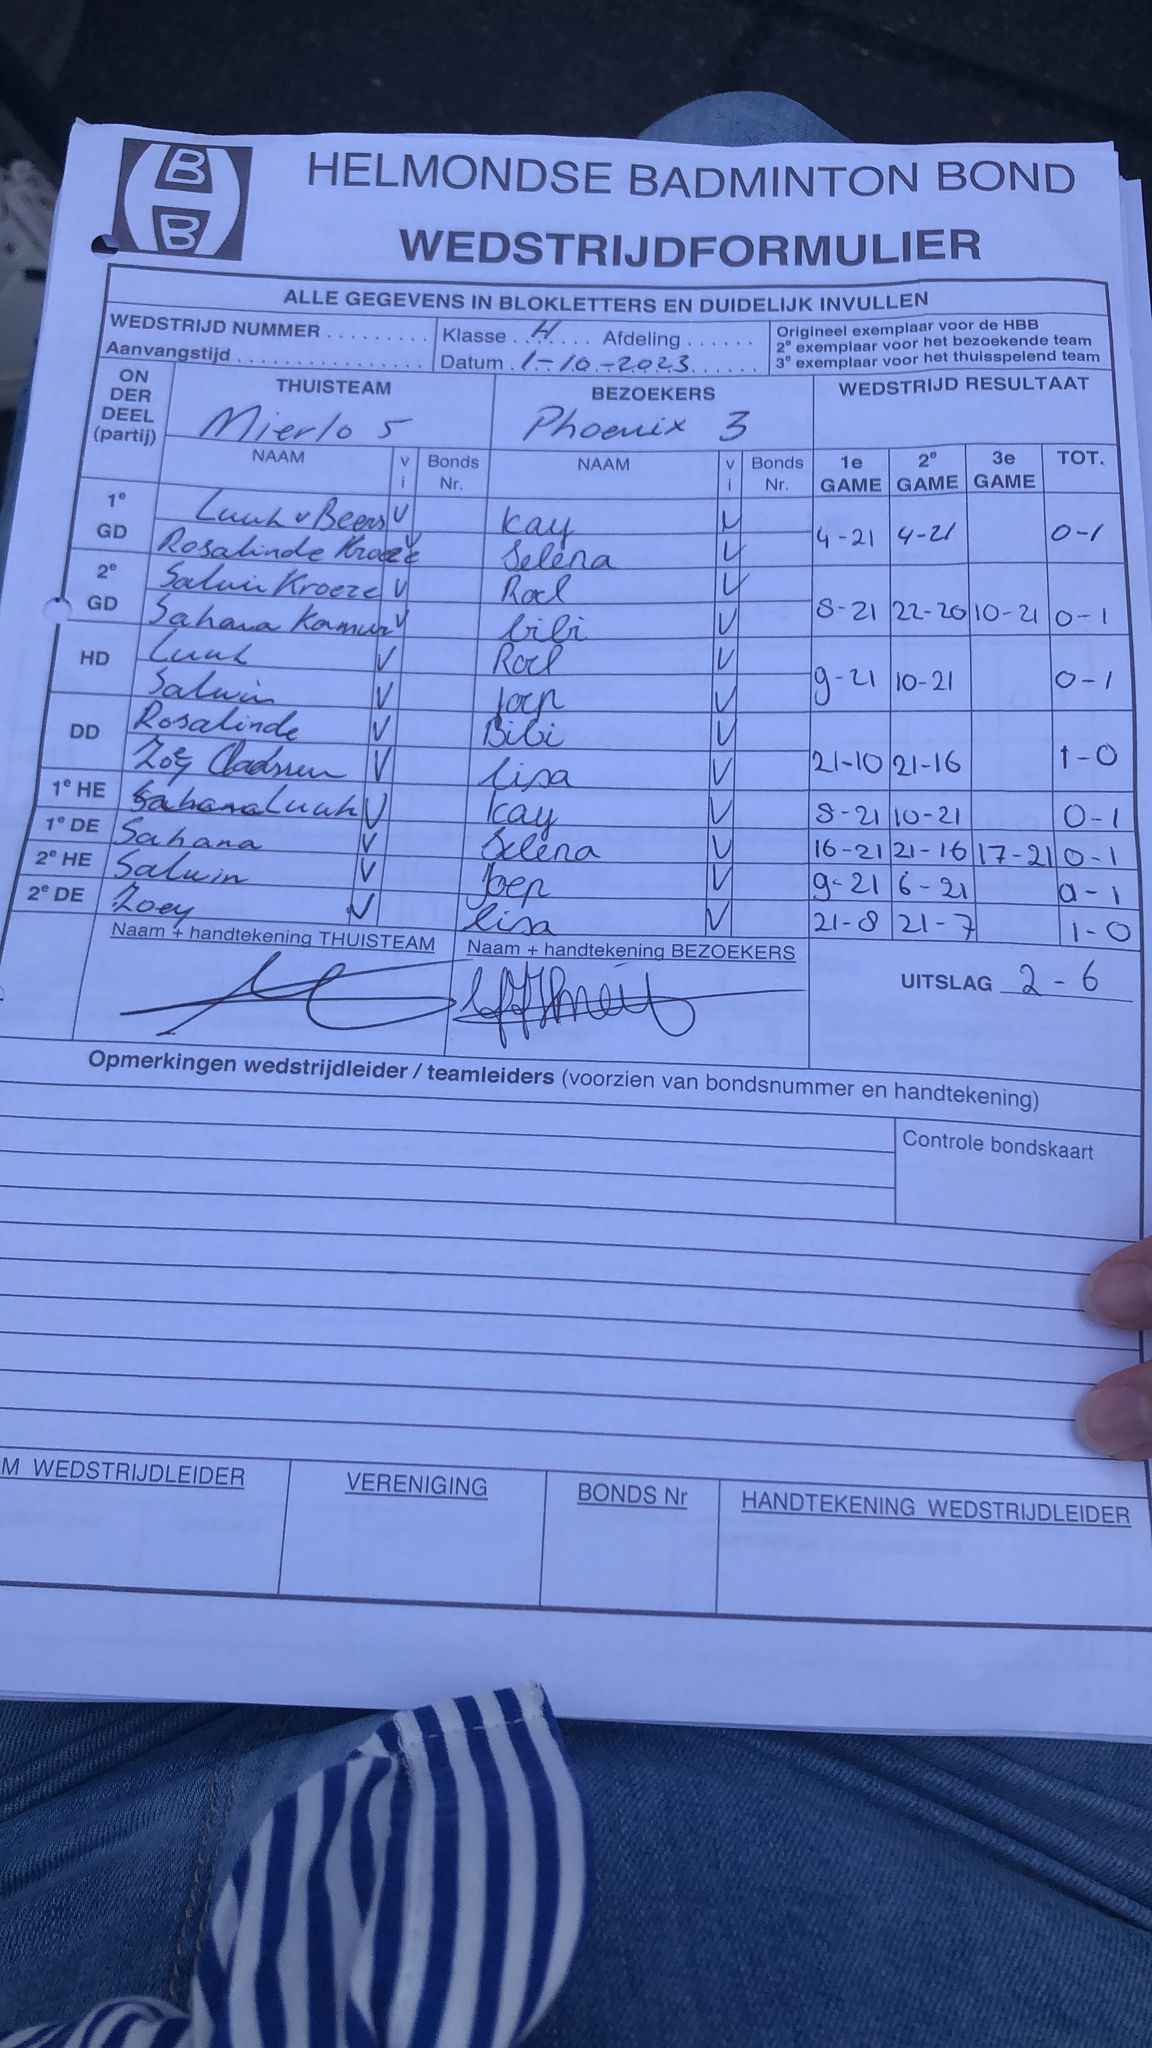 B
B
HELMONDSE BADMINTON BOND
WEDSTRIJDFORMULIER
ALLE GEGEVENS IN BLOKLETTERS EN DUIDELIJK INVULLEN
WEDSTRIJD NUMMER ......... Klasse ..H...... Afdeling ...... Origineel exemplaar voor de HBB
2e exemplaar voor het bezoekende team
Aanvangstijd .................. Datum .1-10-2023...... 3e exemplaar voor het thuisspelend team
ON DER DEEL (partij) THUISTEAM BEZOEKERS WEDSTRIJD RESULTAAT
Mierlo 5 Phoenix 3
NAAM vi Bonds Nr. NAAM vi Bonds Nr. 1e GAME 2e GAME 3e GAME TOT.
1e GD Luuk v Beers V Kay V 4-21 4-21 0-1
Rosalinde Kroeze V Selena V
2e GD Salwin Kroeze V Roel V 8-21 22-20 10-21 0-1
Sahana V bibi V
HD Luuk V Roel V 9-21 10-21 0-1
Salwin V Joep V
DD Rosalinde V Bibi V 21-10 21-16 1-0
Zoey V lisa V
1e HE Sahana Luuk V Kay V 8-21 10-21 0-1
1e DE Sahana V Selena V 16-21 21-16 17-21 0-1
2e HE Salwin V Joep V 9-21 6-21 0-1
2e DE Zoey V lisa V 21-8 21-7 1-0
Naam + handtekening THUISTEAM Naam + handtekening BEZOEKERS
UITSLAG 2-6
Opmerkingen wedstrijdleider / teamleiders (voorzien van bondsnummer en handtekening)
Controle bondskaart
M WEDSTRIJDLEIDER VERENIGING BONDS Nr HANDTEKENING WEDSTRIJDLEIDER